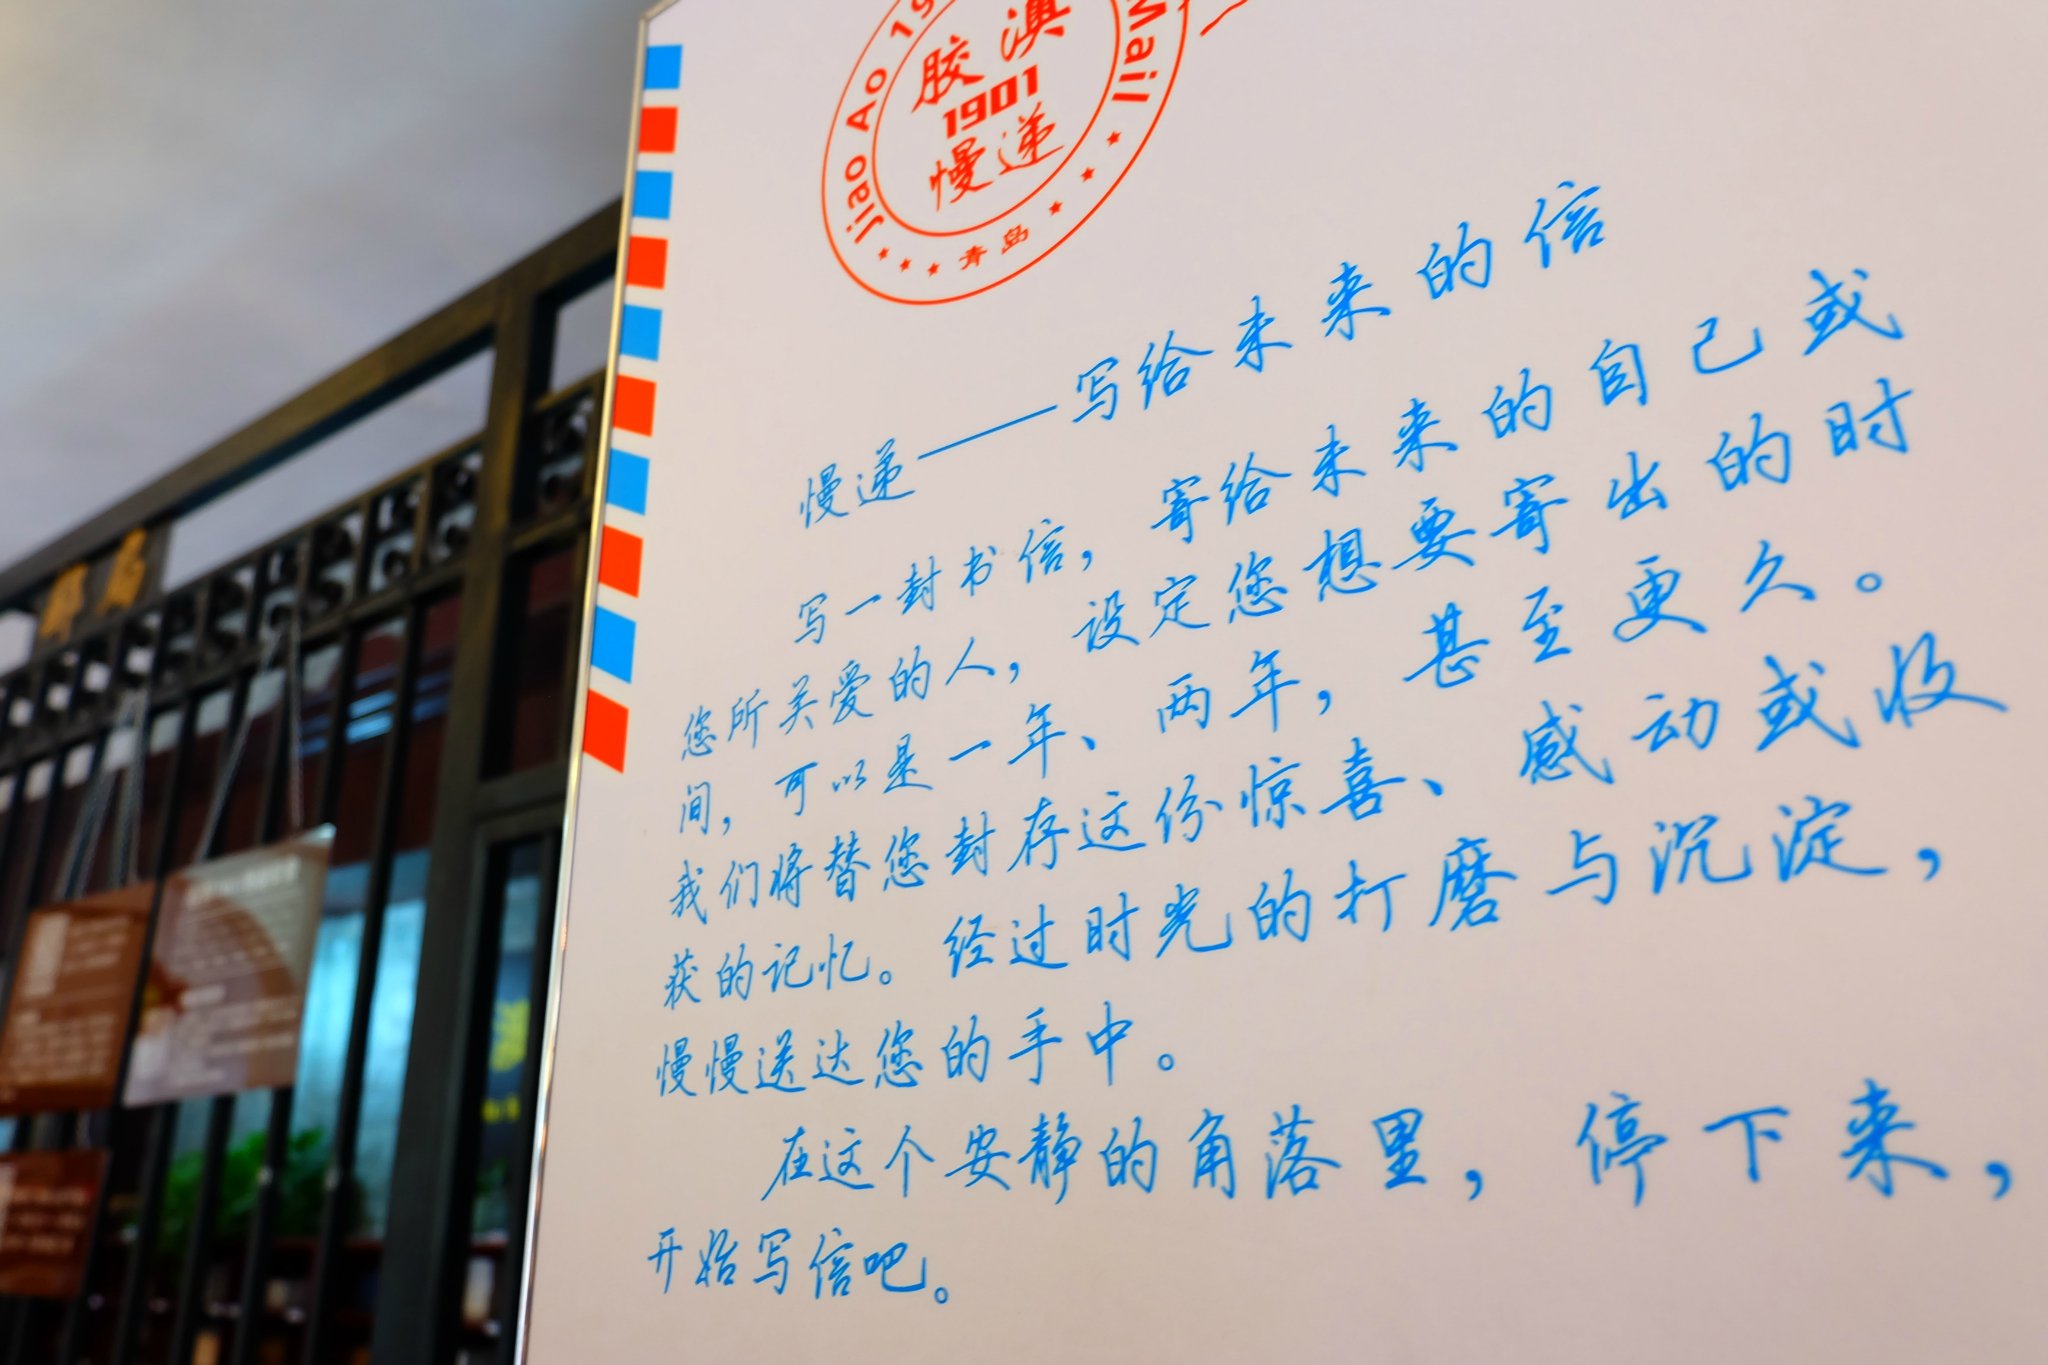 Jiao Ao 19
Mail
胶澳
1901
慢递
青岛
慢递——写给未来的信
写一封书信，寄给未来的自己或
您所关爱的人，设定您想要寄出的时
间，可以是一年、两年，甚至更久。
我们将替您封存这份惊喜、感动或收
获的记忆。经过时光的打磨与沉淀，
慢慢送达您的手中。
在这个安静的角落里，停下来，
开始写信吧。